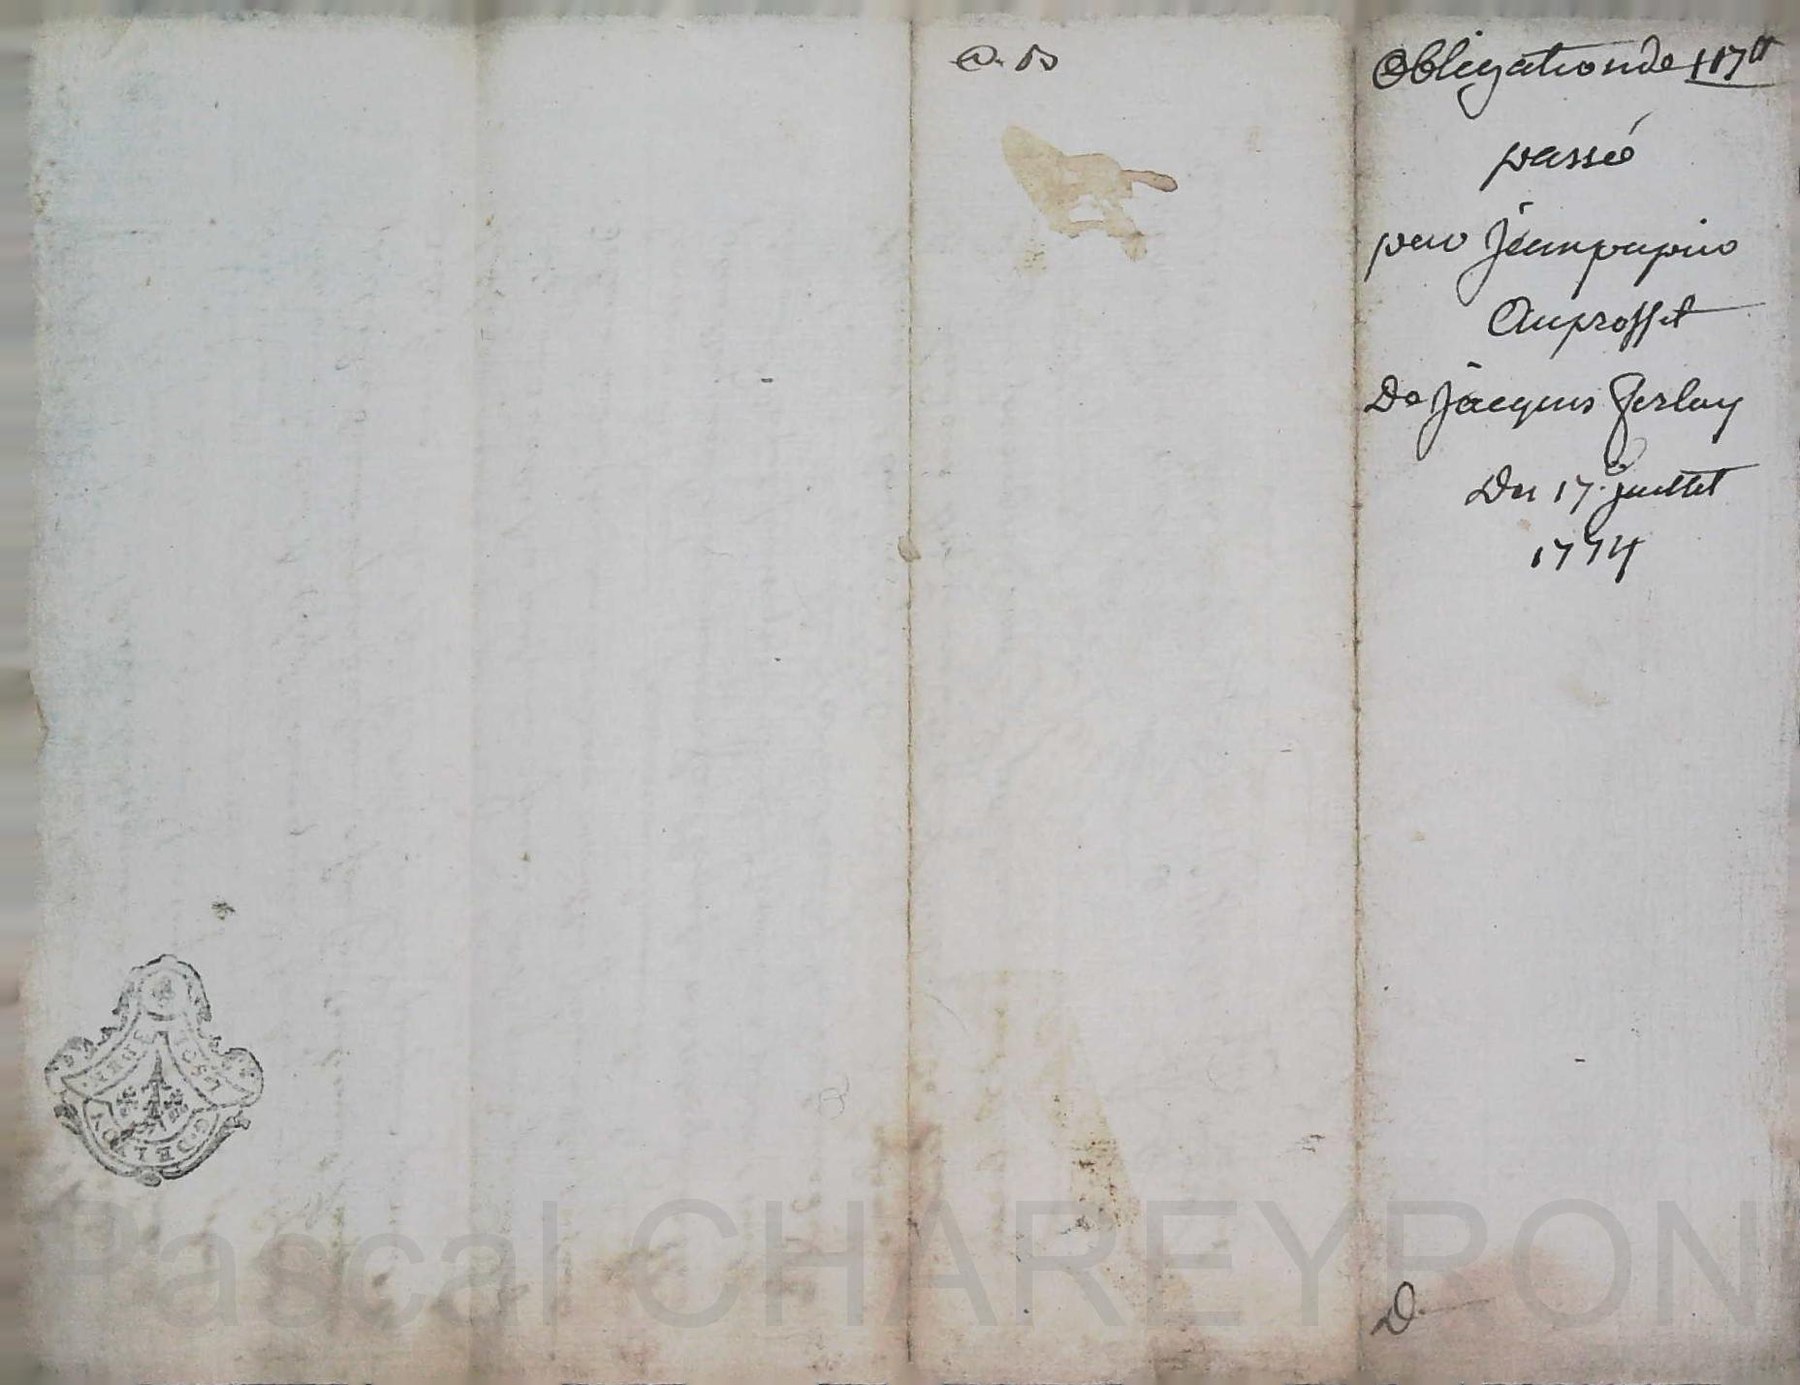 Obligation de 117tt
passé
par Jean papin
Au proffit
De Jacques Ferlay
Du 17. juillet
1774
D.
G. DE LYON
Pascal CHAREYRON